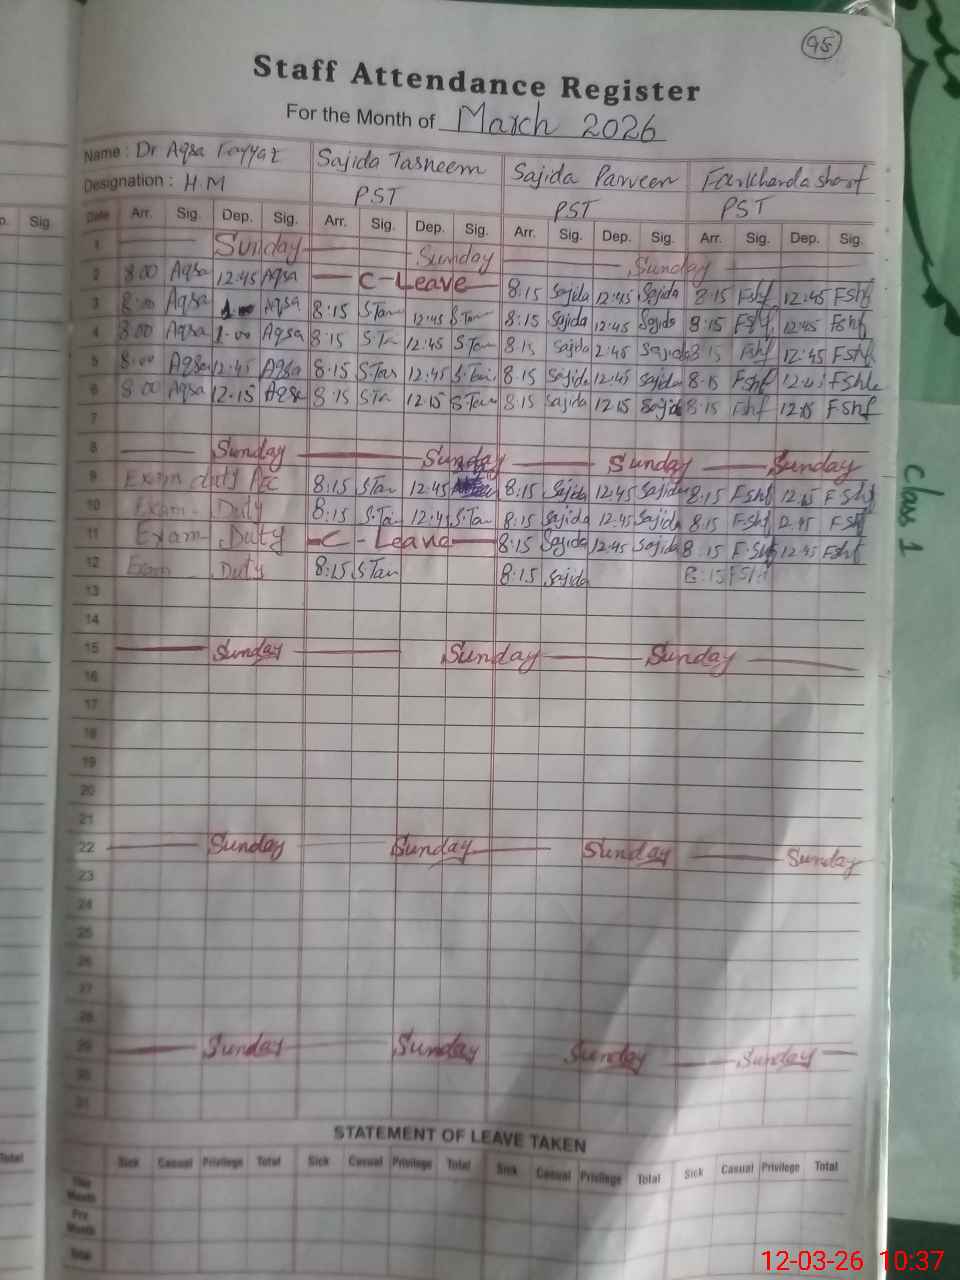 95
Staff Attendance Register
For the Month of March 2026
Name : Dr Aqsa Fayyaz Sajida Tasneem Sajida Parveen Farkhanda
Designation : H.M PST PST PST
Date Arr. Sig. Dep. Sig. Arr. Sig. Dep. Sig. Arr. Sig. Dep. Sig. Arr. Sig. Dep. Sig.
p. Sig.
1 Sunday Sunday Sunday
2 8:00 Aqsa 12:45 Aqsa C-Leave 8:15 Sajida 12:45 Sajida 8:15 Fshf 12:45 Fshf
3 8:00 Aqsa Aqsa 8:15 S.Tan 12:45 S.Tan 8:15 Sajida 12:45 Sajida 8:15 Fshf 12:45 Fshf
4 8:00 Aqsa 1:00 Aqsa 8:15 S.Ta 12:45 S.Tan 8:15 Sajida 2:45 Sajida 8:15 Fshf 12:45 Fshf
5 8:00 Aqsa 12:45 Aqsa 8:15 S.Tas 12:45 S.Tas 8:15 Sajida 12:45 Sajida 8:15 Fshf Fshf
6 8:00 Aqsa 12:15 Aqsa 8:15 S.Ta 12:15 S.Tan 8:15 Sajida 12:15 Sajida 8:15 Fshf 12:15 Fshf
7
8 Sunday Sunday Sunday Sunday
9 Exam duty PEC 8:15 S.Tan 12:45 8:15 Sajida 12:45 Sajida 8:15 Fshf Fshf
10 Exam - Duty 8:15 S.Tan 12:45 S.Tan 8:15 Sajida 12:45 Sajida 8:15 Fshf 12:45 Fshf
11 Exam - Duty C-Leave 8:15 Sajida 12:45 Sajida 8:15 F.Shf 12:45 Fshf
12 Exam - Duty 8:15 S.Tan 8:15 Sajida 8:15 FShf
13
14
15 Sunday Sunday Sunday
16
17
18
19
20
21
22 Sunday Sunday Sunday Sunday
23
24
25
26
27
28
29 Sunday Sunday Sunday Sunday
30
31
STATEMENT OF LEAVE TAKEN
Sick Casual Privilege Total Sick Casual Privilege Total Sick Casual Privilege Total Sick Casual Privilege Total
This Month
Pre. Month
Total
Total
Class 1
12-03-26 10:37